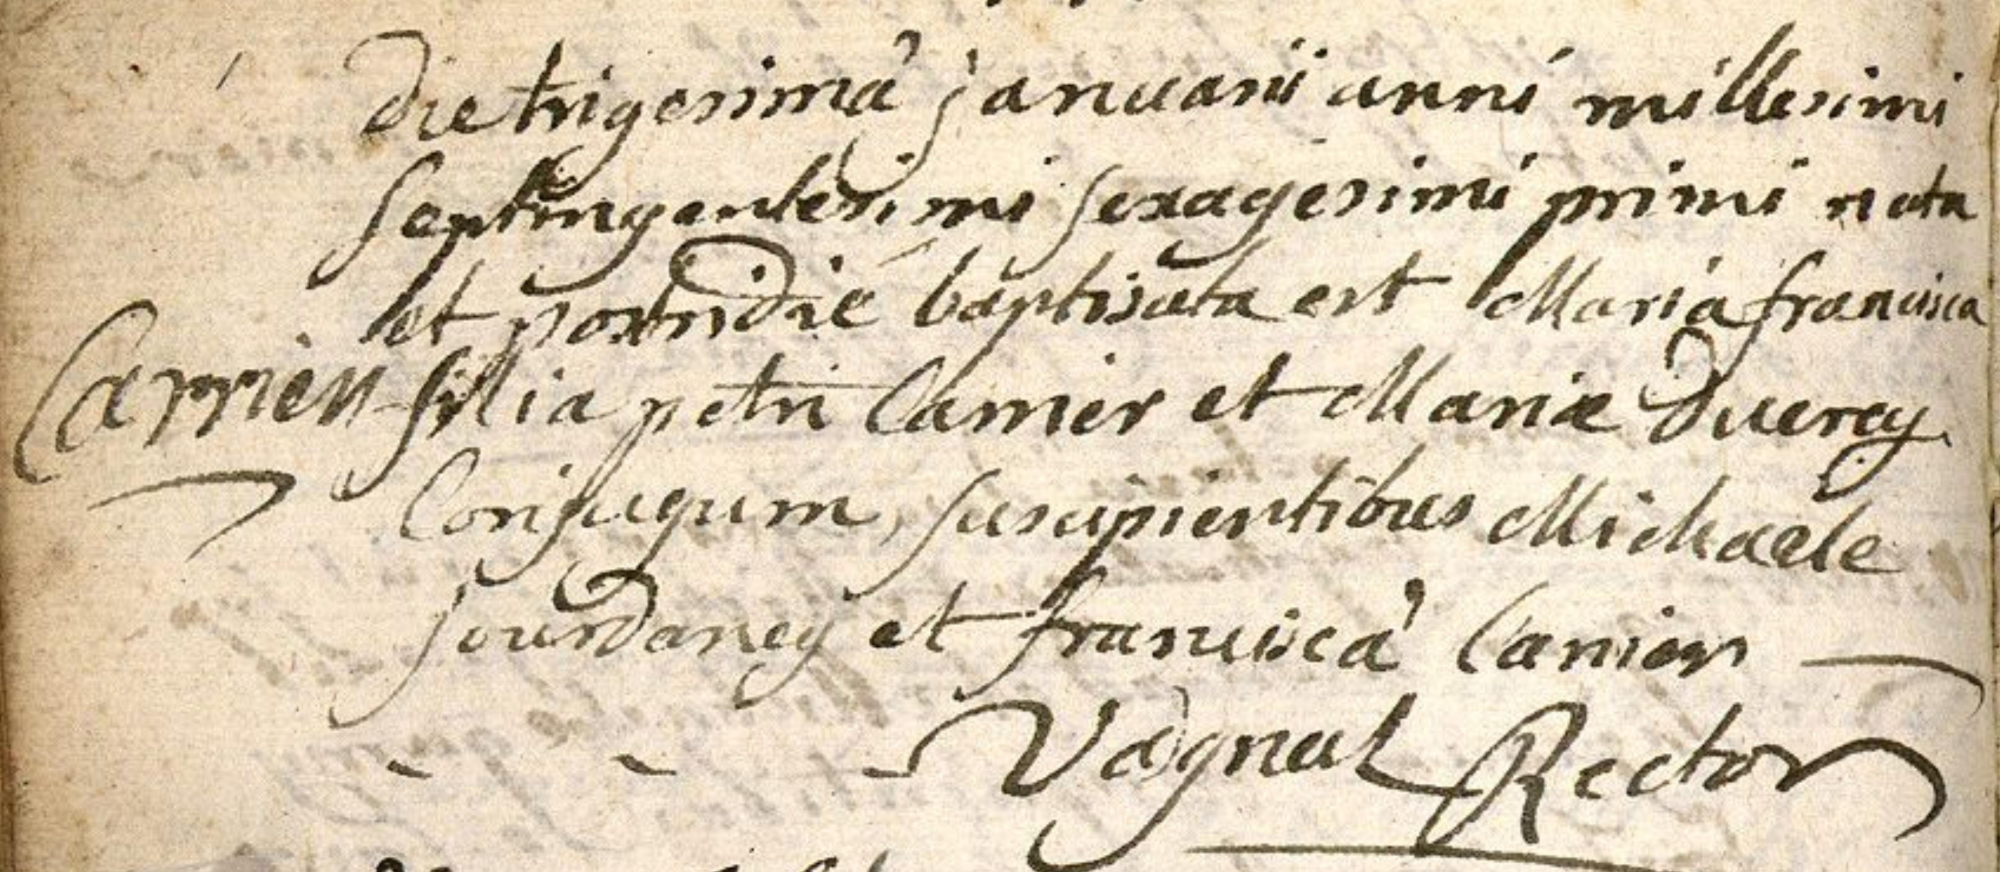 die trigesimâ januarii anni millesimi
septingentesimi sexagesimi primi nata
et postridié baptisata est Maria francisca
Carrier filia petri Carrier et Mariæ Duerey
Conjugum, suscipientibus Michaele
Jourdaney et franciscâ Carrier
Vagnat Rector